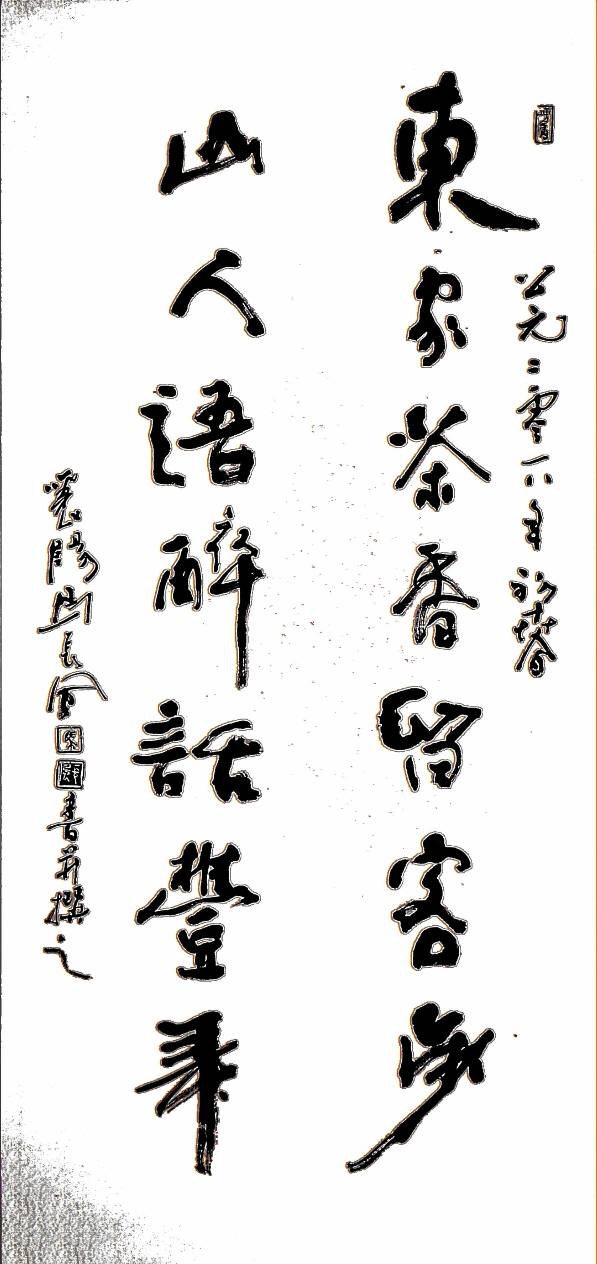 公元二零一八年初春
東家茶香留客步
山人語醉話豐年
襄陽山長
書并撰之